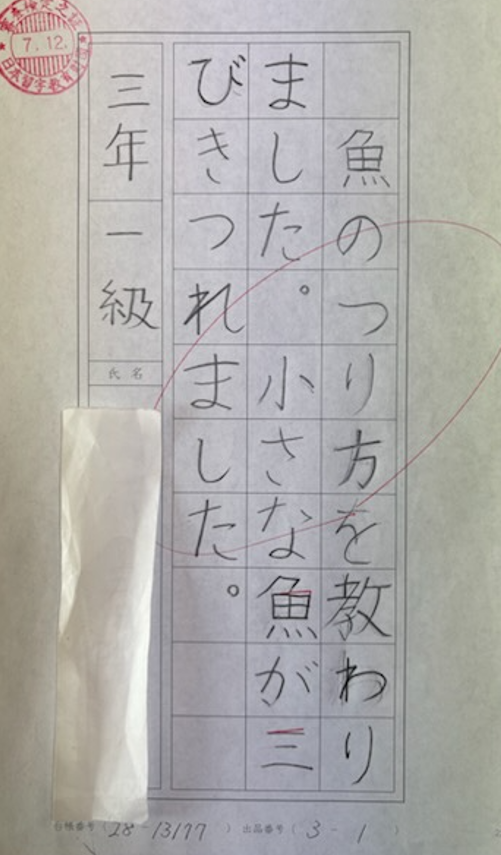 魚のつり方を教わり
ました。小さな魚が三
びきつれました。
三年一級
氏名
7.12.
台帳番号(28-13177) 出品番号(3-1)